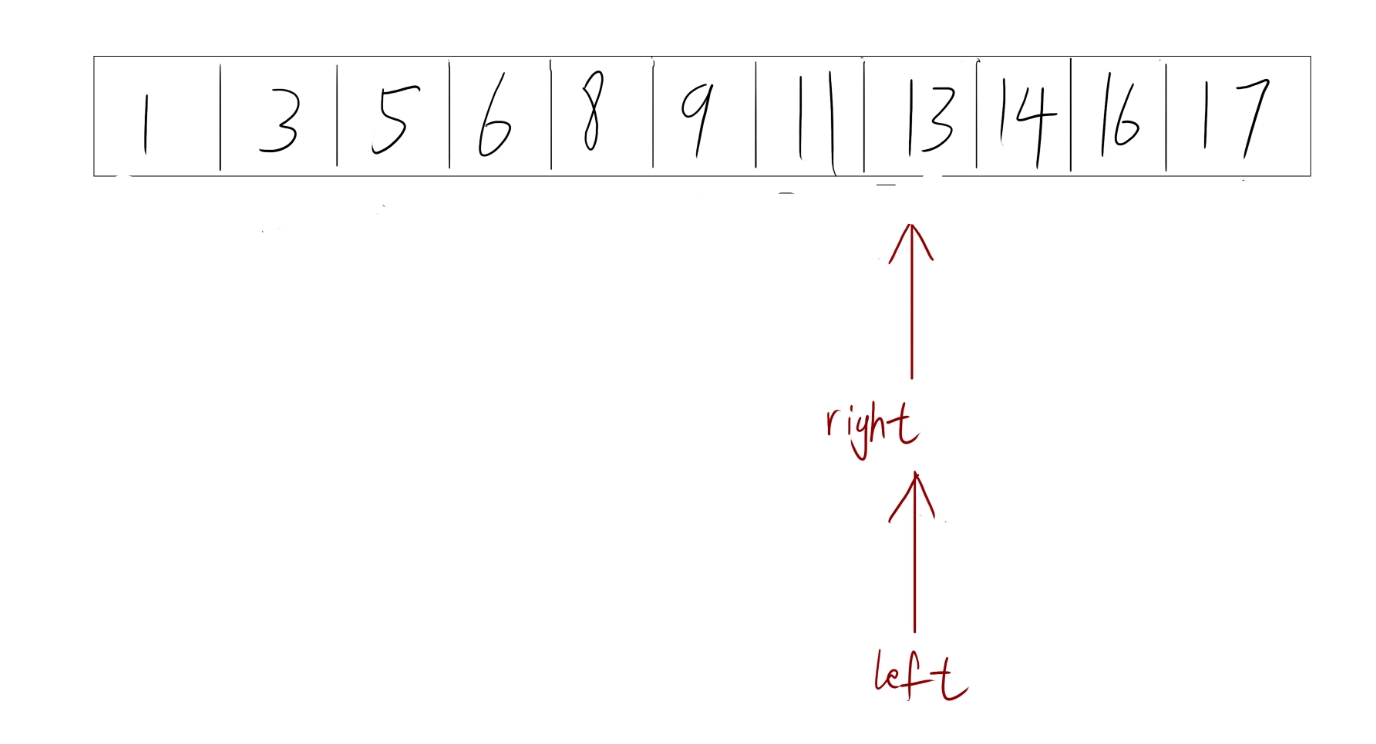 1 3 5 6 8 9 11 13 14 16 17
right
left